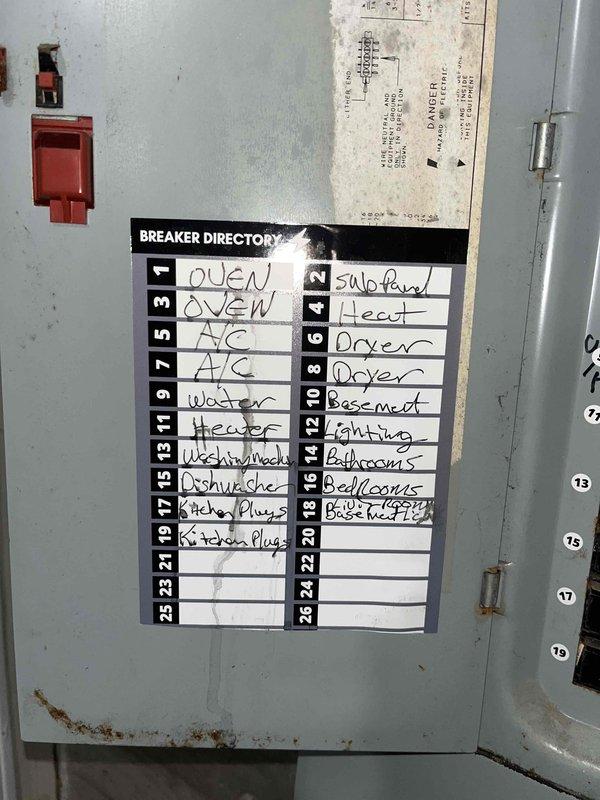 LITHER END
WIRE NEUTRAL AND
EQUIPMENT GROUND
ONLY IN DIRECTION
SHOWN.
DANGER
HAZARD OF ELECTRIC
THIS EQUIPMENT
KITS
BREAKER DIRECTORY
1 OVEN 2 Sub Panel
3 OVEN 4 Heat
5 A/C 6 Dryer
7 A/C 8 Dryer
9 Water 10 Basement
11 Heater 12 Lighting
13 Washing 14 Bathrooms
15 Dishwasher 16 BedRooms
17 Kitchen Plugs 18 Living Room
Basement
19 Kitchen Plugs 20
21 22
23 24
25 26
11
13
15
17
19